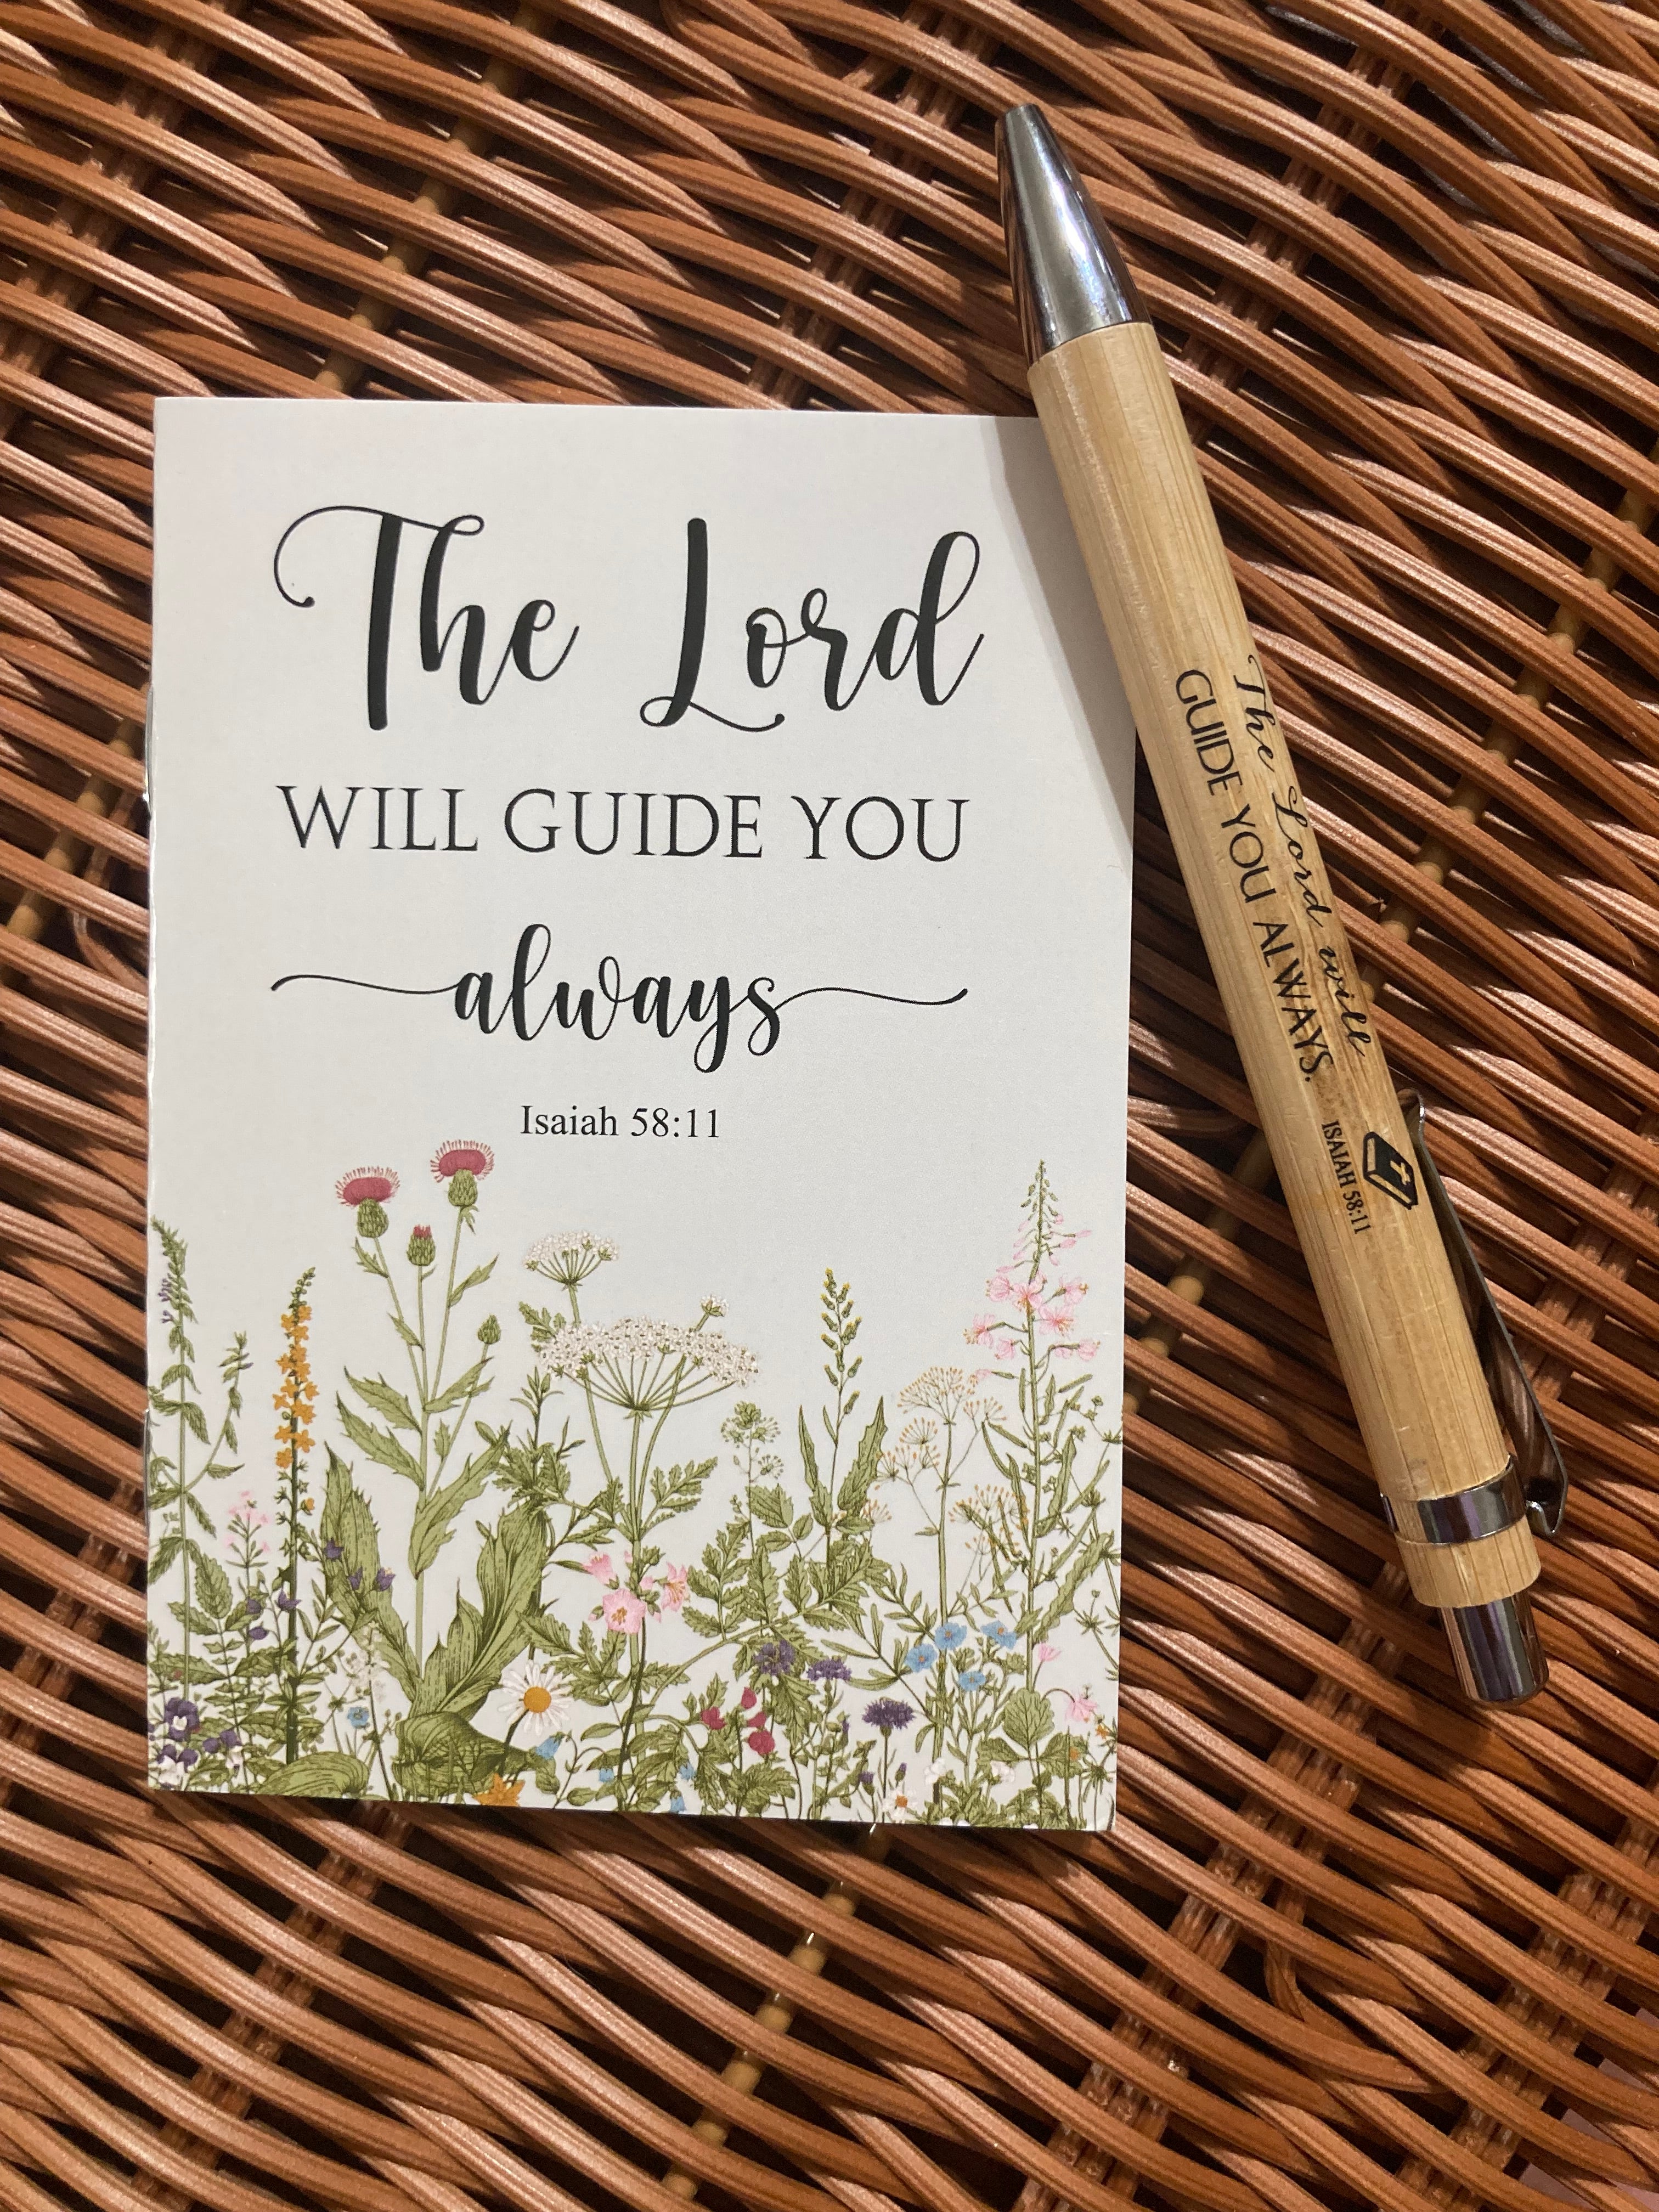 The Lord
WILL GUIDE YOU
always
Isaiah 58:11
The Lord will
GUIDE YOU ALWAYS.
ISAIAH 58:11